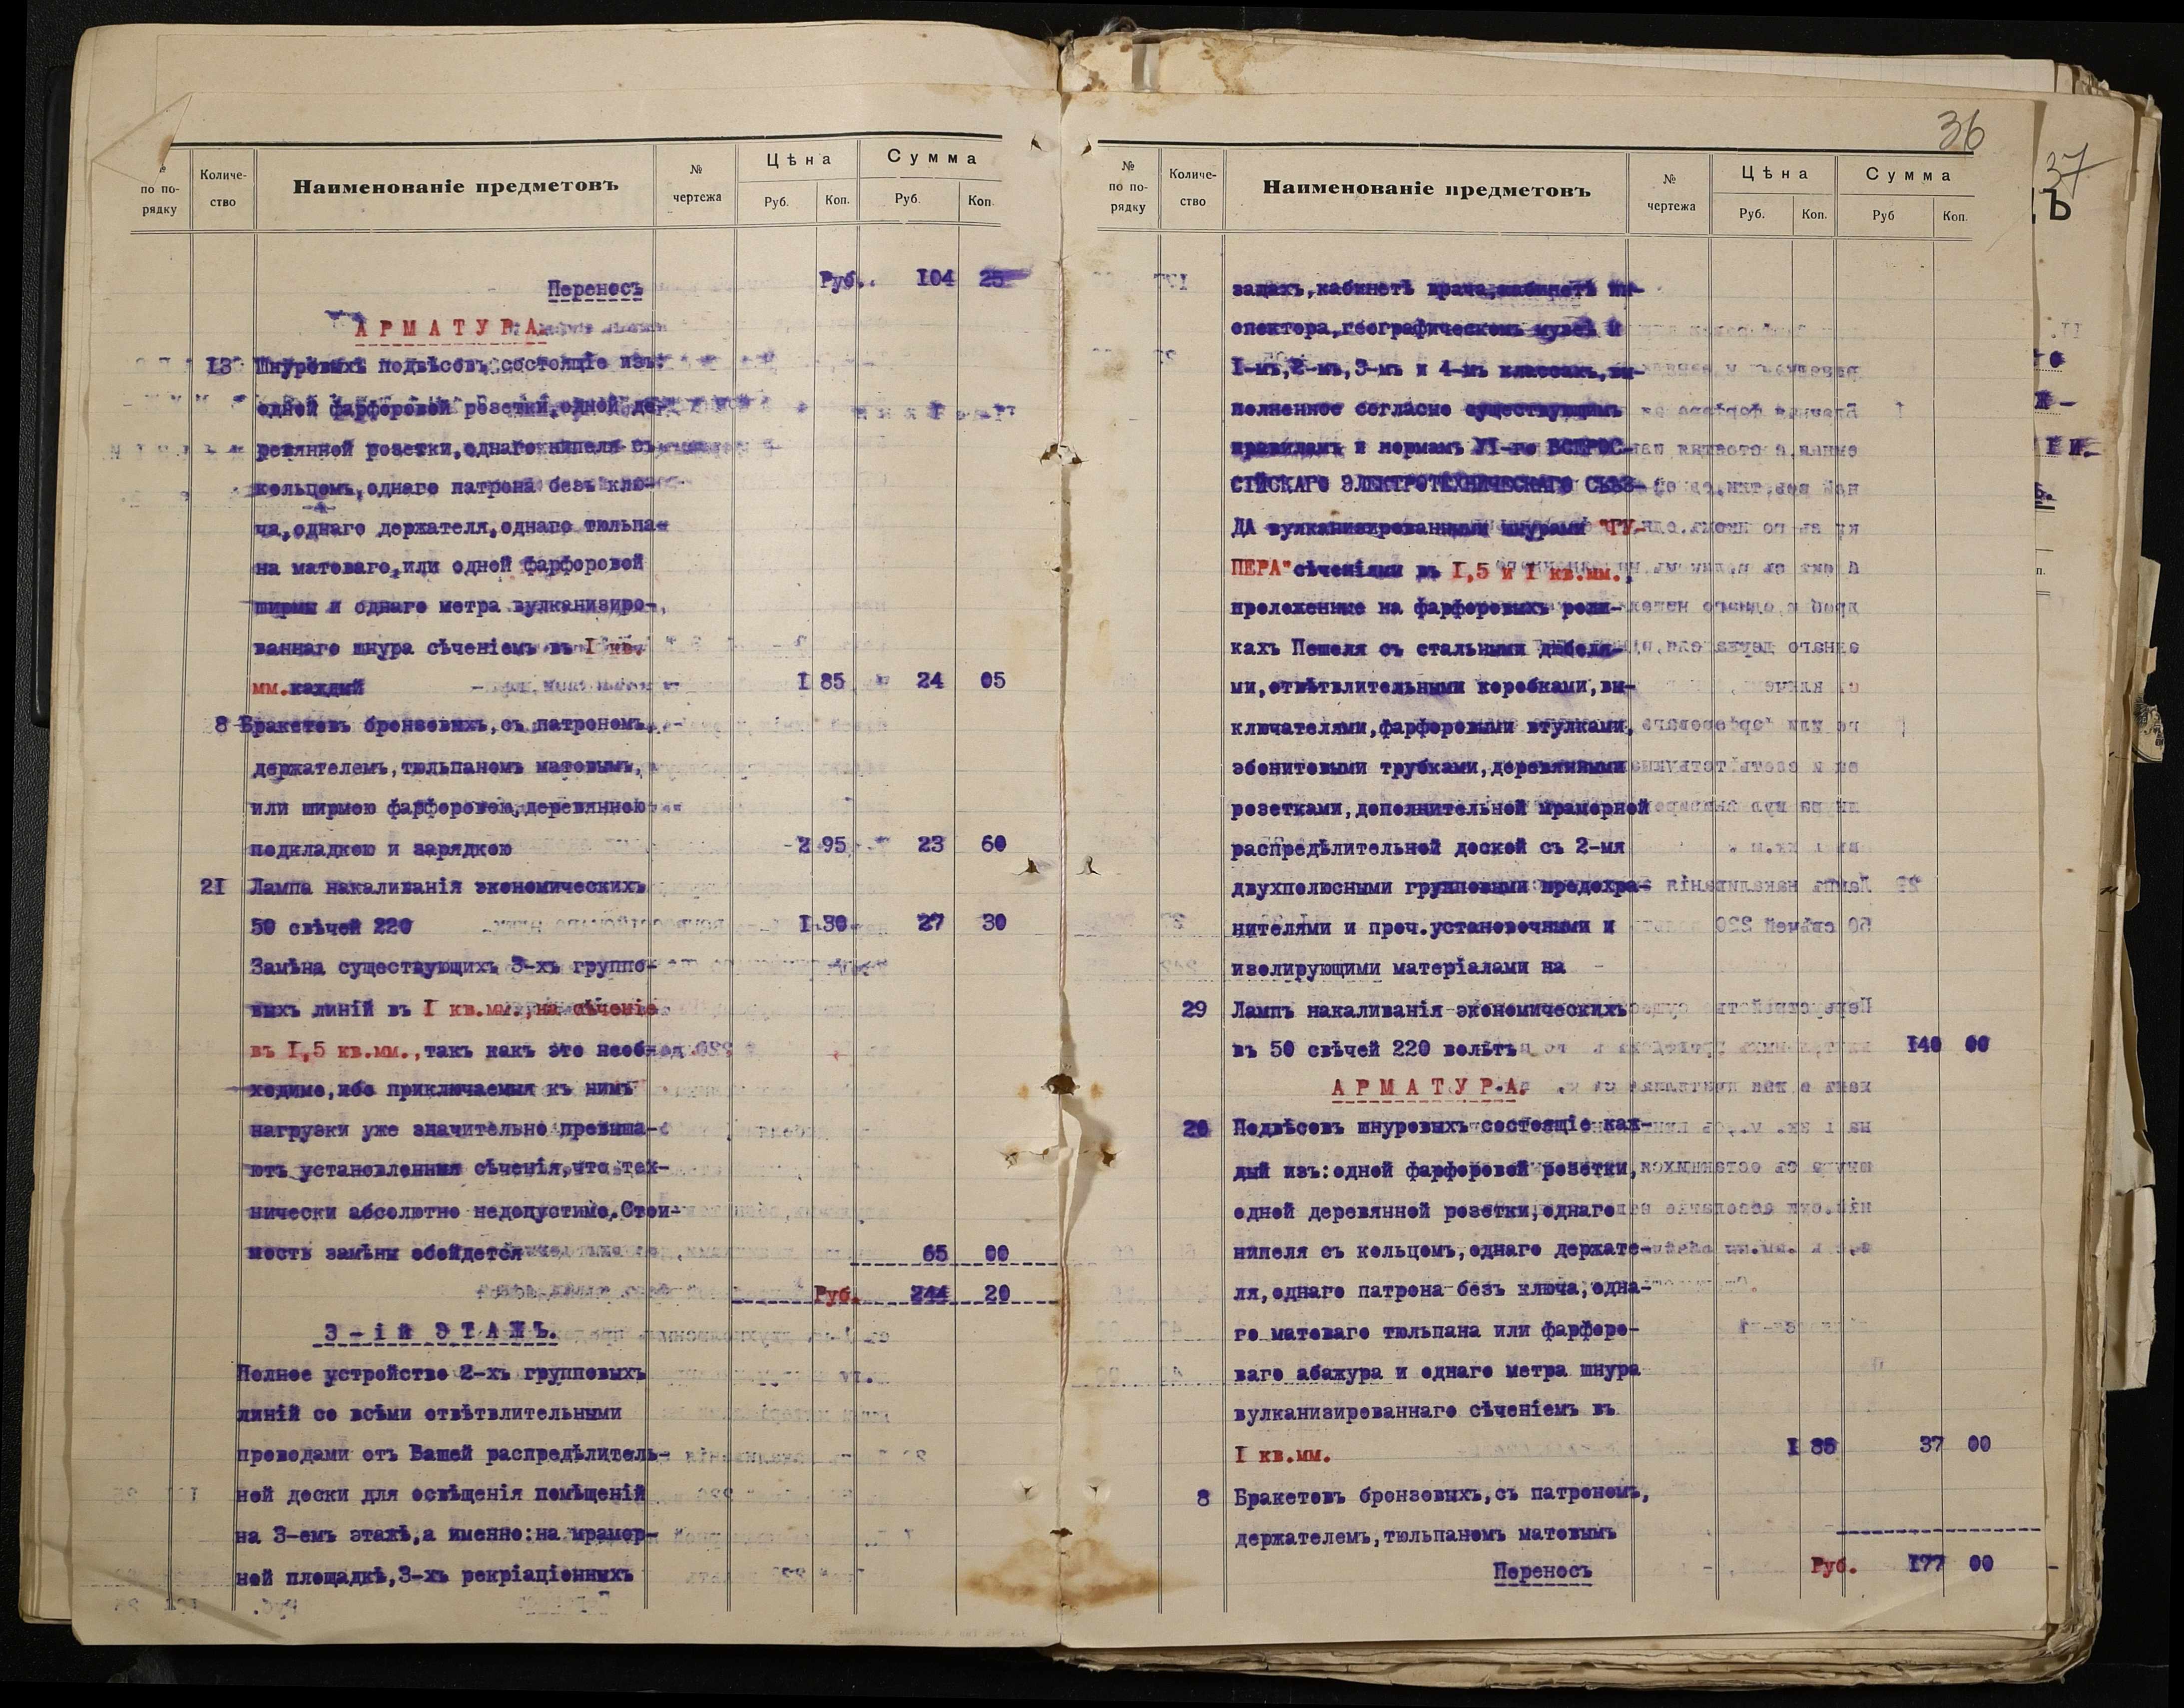 № по по-рядку Количе-ство Наименованіе предметовъ № чертежа Цѣна Руб. Коп. Сумма Руб. Коп.
Переносъ Руб. 104 25
АРМАТУРА.
13 Шнуровыхъ подвѣсовъ,состоящіе изъ:
одной фарфоровой розетки,одной де-
ревянной розетки,однаго нипеля съ
кольцомъ,однаго патрона безъ клю-
ча,однаго держателя,однаго тюльпа-
на матоваго,или одной фарфоровой
ширмы и однаго метра вулканизиро-
ваннаго шнура сѣченіемъ въ I кв.
мм.каждый I 85 24 05
8 Бракетовъ бронзовыхъ,съ патрономъ,
держателемъ,тюльпаномъ матовымъ,
или ширмою фарфоровою,деревянною
подкладкою и зарядкою 2 95 23 60
21 Лампа накаливанія экономическихъ
50 свѣчей 220 I 30 27 30
Замѣна существующихъ 3-хъ группо-
выхъ линій въ I кв.мм.,на сѣченіе
въ I,5 кв.мм.,такъ какъ это необ-
ходимо,ибо приключаемыя къ нимъ
нагрузки уже значительно превыша-
ютъ установленныя сѣченія,что тех-
нически абсолютно недопустимо.Стои-
мость замѣны обойдется 65 00
Руб. 244 20
3-ій ЭТАЖЪ.
Полное устройство 2-хъ групповыхъ
линій со всѣми отвѣтвлительными
проводами отъ Вашей распредѣлитель-
ной доски для освѣщенія помѣщеній
на 3-емъ этажѣ,а именно:на мрамор-
ной площадкѣ,3-хъ рекріаціонныхъ
36
37
№ по по-рядку Количе-ство Наименованіе предметовъ № чертежа Цѣна Руб. Коп. Сумма Руб Коп.
залахъ,кабинетѣ врача,кабинетѣ ин-
спектора,географическомъ музеѣ и
I-мъ,2-мъ,3-мъ и 4-мъ классахъ,вы-
полненное согласно существующимъ
правиламъ и нормамъ УI-го ВСЕРОС-
СІЙСКАГО ЭЛЕКТРОТЕХНИЧЕСКАГО СЪѢЗ-
ДА вулканизированными шнурами "ГУ-
ПЕРА"сѣченіями въ I,5 и I кв.мм.,
проложенные на фарфоровыхъ роли-
кахъ Пешеля съ стальными дюбеля-
ми,отвѣтвлительными коробками,вы-
ключателями,фарфоровыми втулками,
эбонитовыми трубками,деревянными
розетками,дополнительной мраморной
распредѣлительной доской съ 2-мя
двухполюсными групповыми предохра-
нителями и проч.установочными и
изолирующими матеріалами на
29 Лампъ накаливанія экономическихъ
въ 50 свѣчей 220 вольтъ 140 00
АРМАТУРА.
20 Подвѣсовъ шнуровыхъ состоящіе каж-
дый изъ:одной фарфоровой розетки,
одной деревянной розетки,однаго
нипеля съ кольцомъ,однаго держате-
ля,однаго патрона безъ ключа,одна-
го матоваго тюльпана или фарфоро-
ваго абажура и однаго метра шнура
вулканизированнаго сѣченіемъ въ
I кв.мм. I 85 37 00
8 Бракетовъ бронзовыхъ,съ патрономъ,
держателемъ,тюльпаномъ матовымъ
Переносъ Руб. 177 00